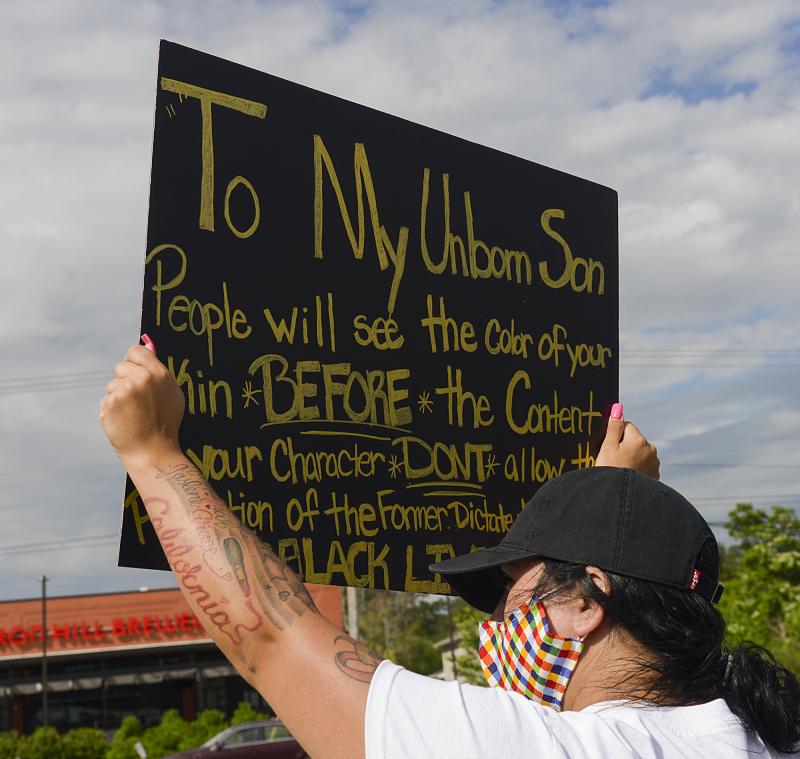 To My Unborn Son
People will see the Color of your
kin *BEFORE* the Content
your Character *DONT* allow th
tion of the Former. Dictate
BLACK LIV
California
RON HILL BREWE